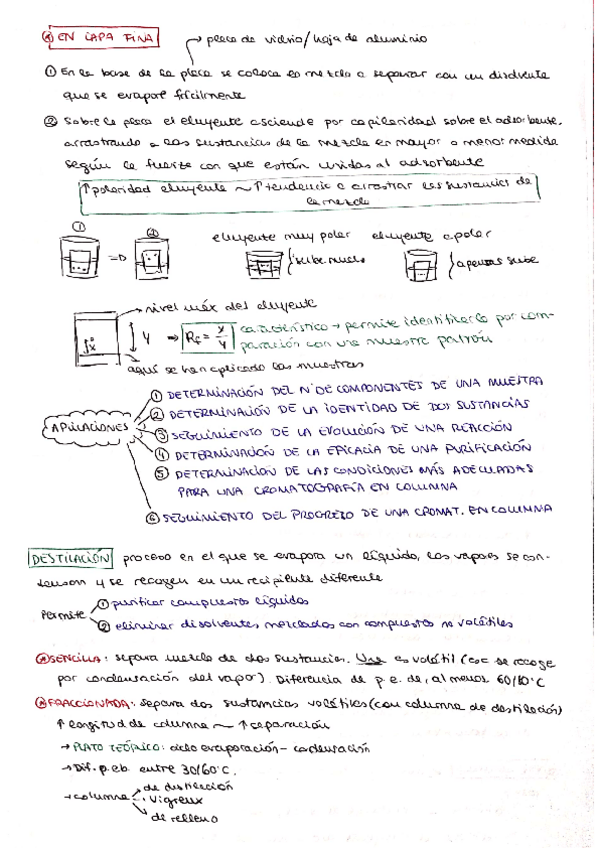 EN CAPA FINA → placa de vidrio/hoja de aluminio
① En la base de la placa se coloca la mezcla a separar con un disolvente
que se evapore fácilmente
② Sobre la placa el eluyente asciende por capilaridad sobre el adsorbente,
arrastrando a las sustancias de la mezcla en mayor o menor medida
según la fuerza con que están unidas al adsorbente
↑ polaridad eluyente ~ ↑ tendencia a arrastrar las sustancias de
la mezcla
① ② eluyente muy polar eluyente apolar
sube mucho apenas sube
nivel máx del eluyente
x y ⇒ Rf = x/y característico → permite identificarlo por com-
paración con una muestra patrón
aquí se han aplicado las muestras
APLICACIONES
① DETERMINACIÓN DEL Nº DE COMPONENTES DE UNA MUESTRA
② DETERMINACIÓN DE LA IDENTIDAD DE DOS SUSTANCIAS
③ SEGUIMIENTO DE LA EVOLUCIÓN DE UNA REACCIÓN
④ DETERMINACIÓN DE LA EFICACIA DE UNA PURIFICACIÓN
⑤ DETERMINACIÓN DE LAS CONDICIONES MÁS ADECUADAS
PARA UNA CROMATOGRAFÍA EN COLUMNA
⑥ SEGUIMIENTO DEL PROGRESO DE UNA CROMAT. EN COLUMNA
DESTILACIÓN proceso en el que se evapora un líquido, los vapores se con-
densan y se recogen en un recipiente diferente
Permite
① purificar compuestos líquidos
② eliminar disolventes mezclados con compuestos no volátiles
SENCILLA: separa mezcla de dos sustancias. Una es volátil (que se recoge
por condensación del vapor). Diferencia de p.e. de, al menos 60/80°C
FRACCIONADA: separa dos sustancias volátiles (con columna de destilación)
↑ longitud de columna ~ ↑ separación
→ PLATO TEÓRICO: ciclo evaporación - condensación
→ Dif. p.eb. entre 30/60°C.
→ columna
de destilación
Vigreux
de relleno